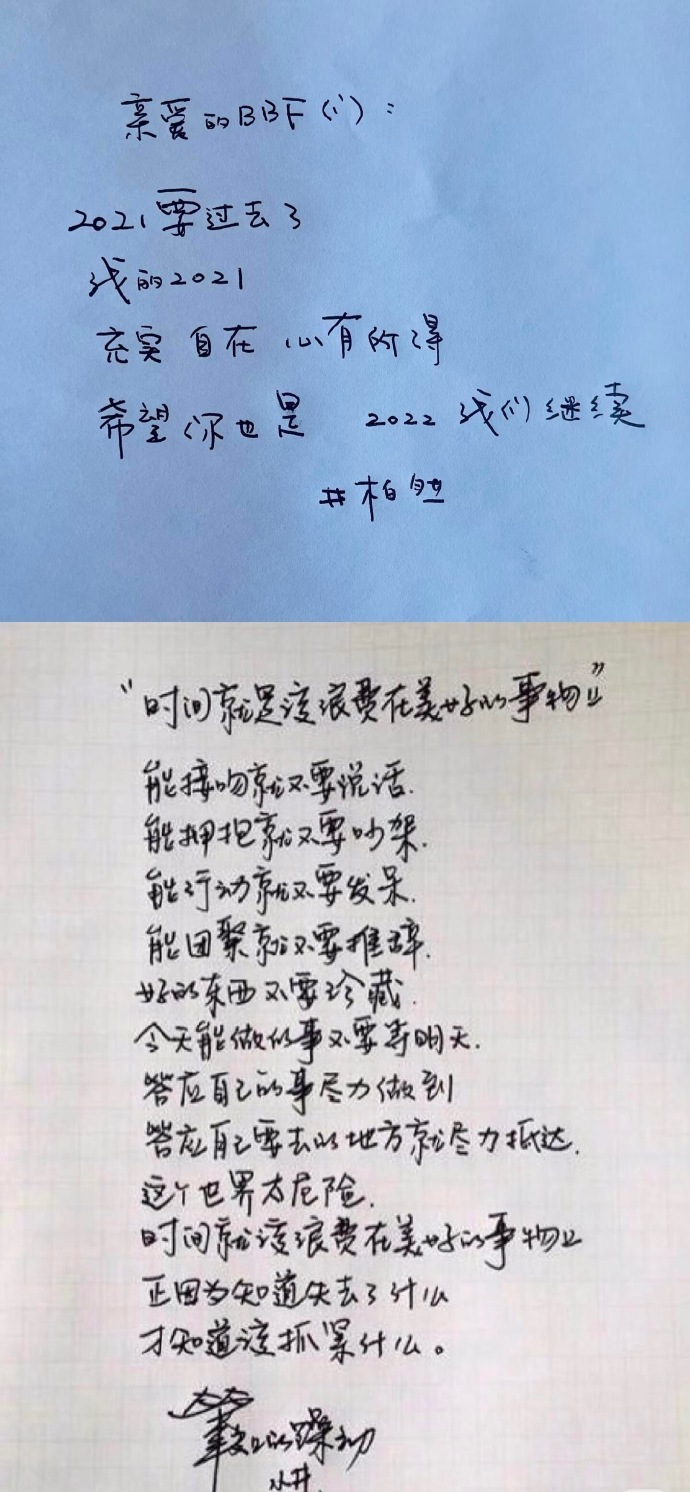 亲爱的BBF(们)：
2021要过去了
我的2021
充实 自在 心有所得
希望你也是 2022 我们继续
#柏然
“时间就是该浪费在美好的事物上”
能接吻就不要说话.
能拥抱就不要吵架.
能行动就不要发呆.
能团聚就不要推辞.
好的东西不要珍藏.
今天能做的事不要等明天.
答应自己的事尽力做到
答应自己要去的地方就尽力抵达.
这个世界太危险.
时间就该浪费在美好的事物上
正因为知道失去了什么
才知道该抓紧什么。
的躁动